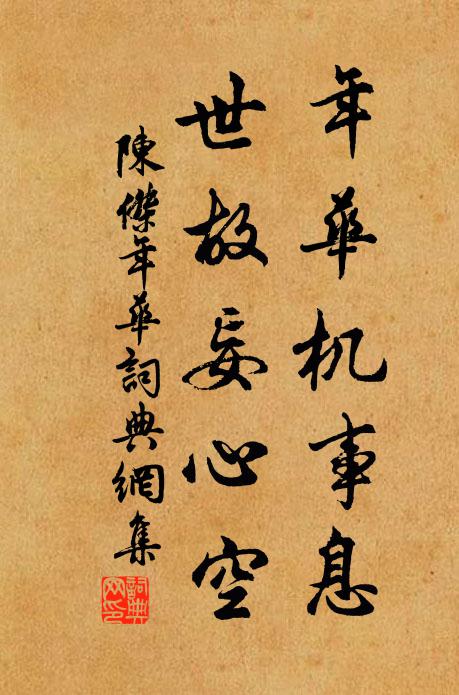 年華机事息
世故妄心空
陳傑年華詞典網集
詞典
网印